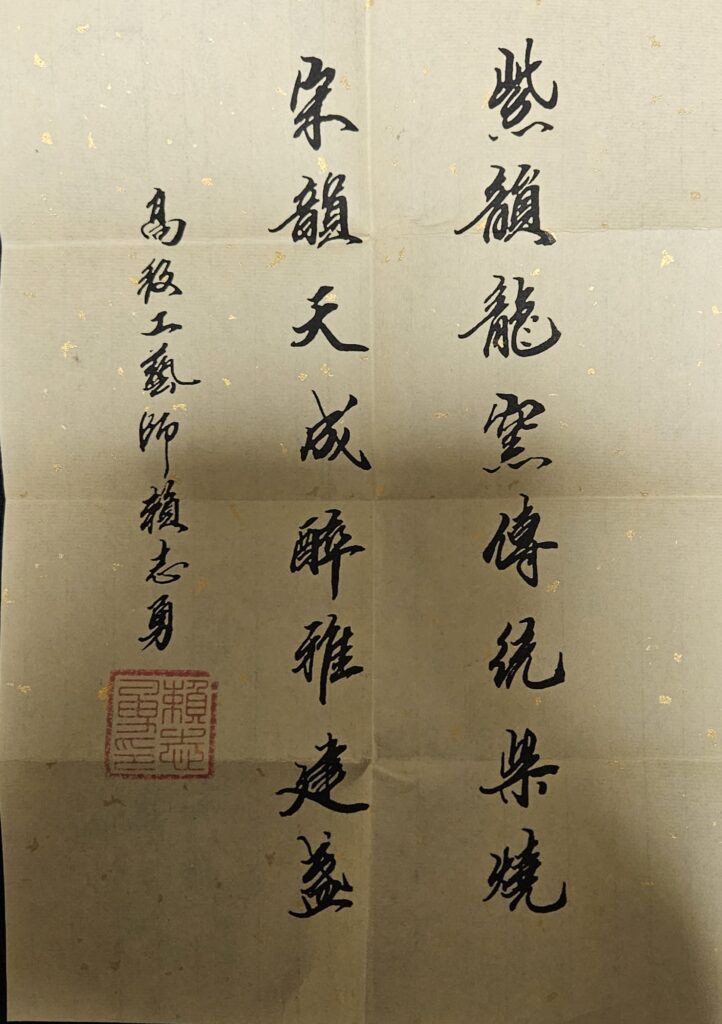 紫韻龍窯傳統柴燒
宋韻天成醉雅建盞
高級工藝師賴志勇
賴志勇印